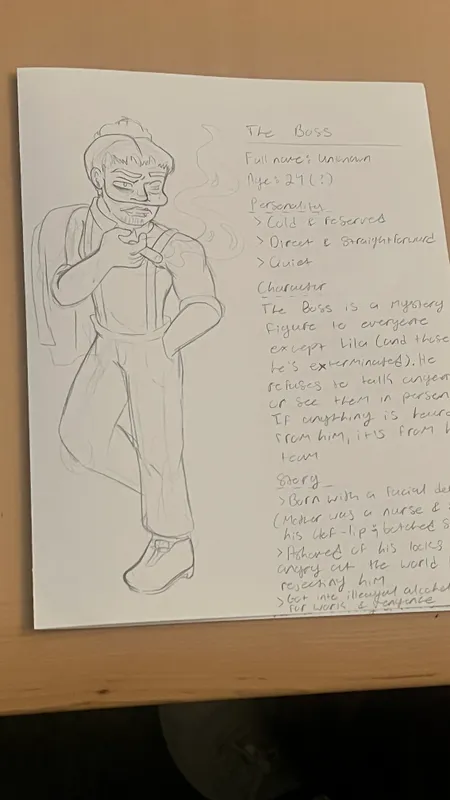 The Boss
Full name: Unknown
Age: 24 (?)
Personality
> Cold & reserved
> Direct & straightforward
> Quiet
Character
The Boss is a mystery
figure to everyone
except Lila (and those
he's exterminated). He
refuses to talk
or see them in person
If anything is
from him, it's from h
team
Story
> Born with a facial de
(Mother was a nurse &
his clef-lip & botched s
> Ashamed of his looks
angry at the world
rejecting him
> Got into alcohol
for work & revenge